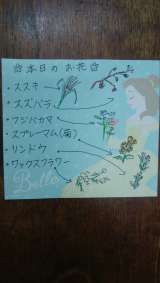 ☆本日のお花☆
・ススキ
・スズバラ
・フジバカマ
・スプレーマム(菊)
・リンドウ
・ワックスフラワー
Belle